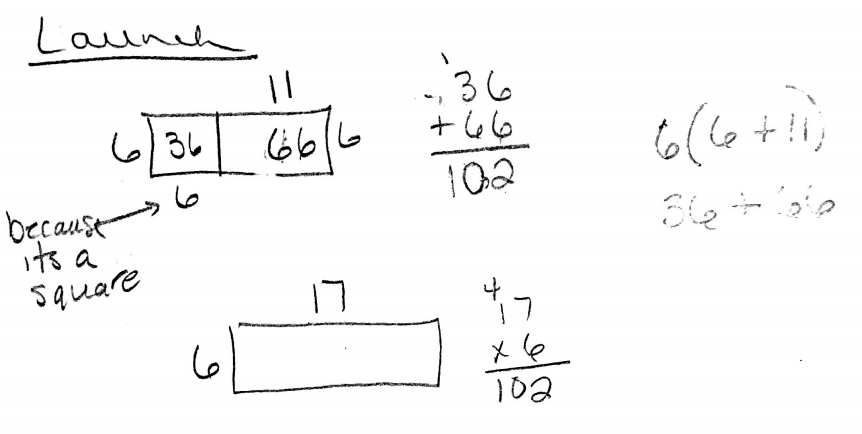 Launch
11
6 36 66 6
6
because
its a
square
1
36
+66
102
6(6+11)
36+66
17
6
4
17
x 6
102